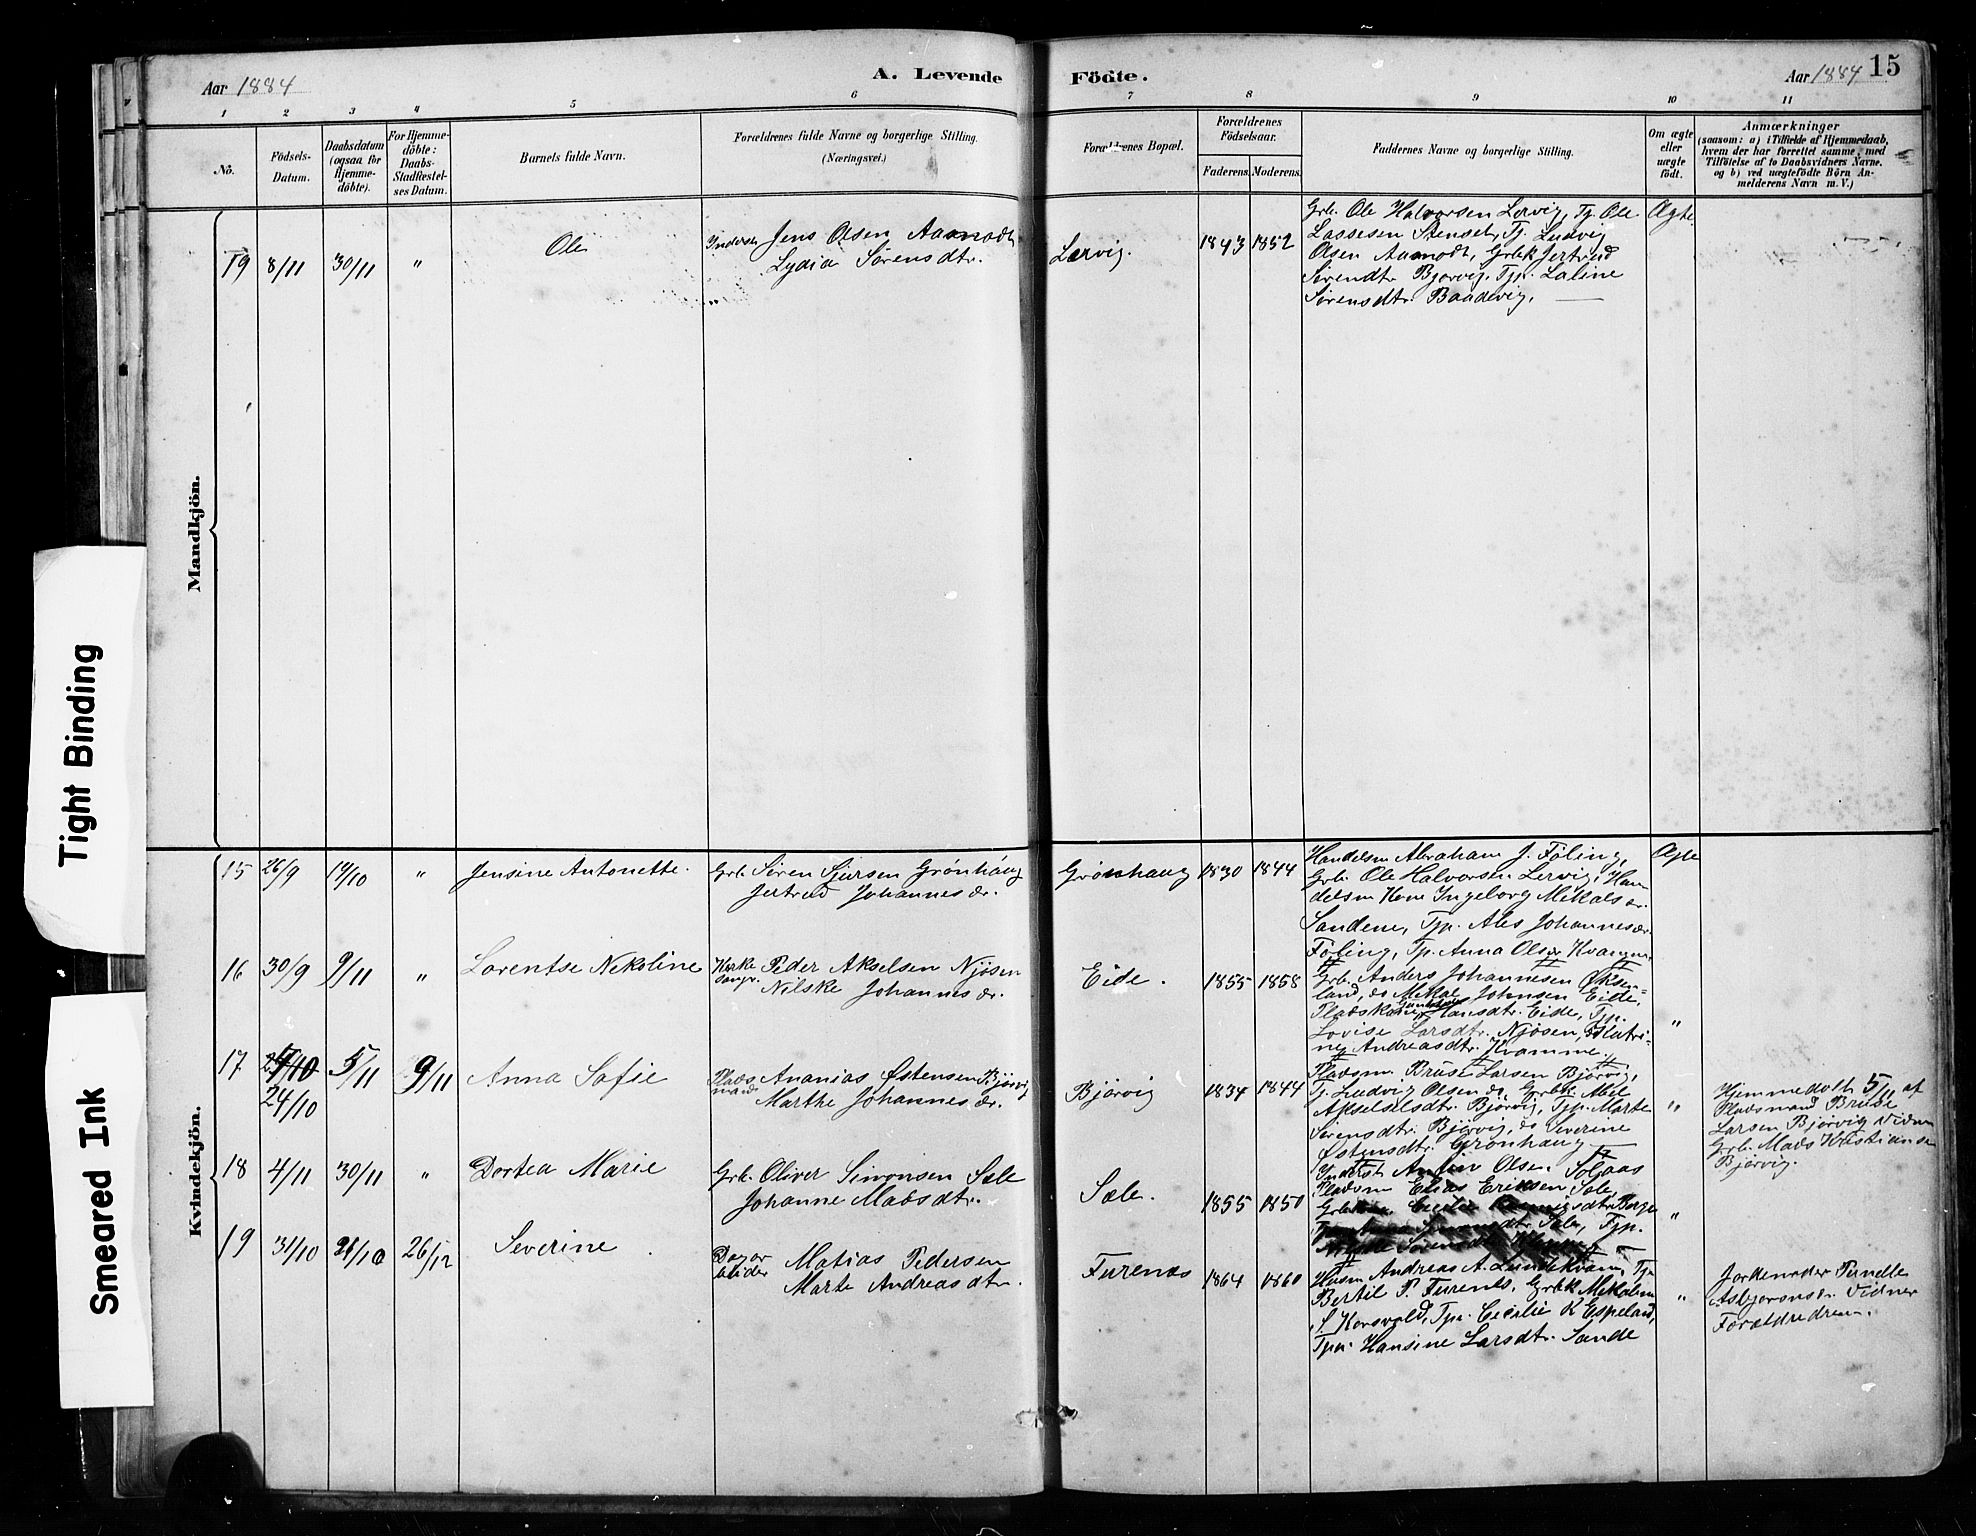 Aar 1884
A. Levende
Födte.
Aar 1884
15
1 2 3 4 5 6 7 8 9 10 11
No.
Födsels-
Datum.
Daabsdatum
(ogsaa for
Hjemme-
döbte).
For Hjemme-
döbte:
Daabs-
Stadfæstel-
ses Datum.
Barnets fulde Navn.
Forældrenes fulde Navne og borgerlige Stilling.
(Næringsvei.)
Forældrenes Bopæl.
Forældrenes
Födselsaar.
Faderens. Moderens.
Faddernes Navne og borgerlige Stilling.
Om ægte
eller
uægte
født.
Anmærkninger
(saasom: a) i Tilfælde af Hjemmedaab,
hvem der har forrettet samme, med
Tilföielse af to Daabsvidners Navne.
og b) ved uægtefödte Börn An-
melderens Navn m. V.)
Mandkjön.
19 8/11 30/11 " Ole
Inderst Jens Olsen Aamodt
Lydia Sörensdtr.
"
Lervig. 1843 1852
Grb. Ole Halvorsen Lervig, Tj. Ole
Lassesen Stenset, Tj. Ludvig
Olsen Aamodt, Grbk Jertrud
Sörendtr Bjorvig, Tjp. Laline
Sörensdtr. Baadevig.
Ægte
Kvindekjön.
15 26/9 19/10 " Jensine Antonette.
Grb. Sören Sjursen Grönhaug
Jertrud Johannesdr.
Grönhaug 1830 1844
Handelsm Abraham J. Föling,
Grb. Ole Halvorsen Lervig, Han
delsm Kone Ingeborg Mikalsdr.
Sandene, Tjp. Ales Johannesdr.
Föling, Tp. Anna Olsdr
Ægte
16 30/9 9/11 " Lorentse Nekoline
Peder Akselsen Njösen
Nilske Johannesdr.
Eide. 1855 1858
Grb. Anders Johannesen Öksen-
land, do Mikal Johnsen Eide,
Hansdtr. Eide, Tjp.
Lovise Larsdtr. Njösen,
Andreasdtr. Kramme.
"
17 24/10 5/11 9/11 Anna Sofie
Plads
mand Ananias Östensen Bjørvig
Marthe Johannesdr.
Bjørvig 1834 1844
Pladsm. Kruse Larsen Bjørvig,
Tj. Ludvig Olsen do, Grbk Abel
Akselsdtr. Bjørvig, Tjp. Marte
Sörensdtr. Bjørvig, do Severine
Östensdtr. Grönhaug
"
Hjemmedøbt 5/11 af
Pladsmand Bruse
Larsen Bjørvig Vidner
Grb. Mads Kristiansen
Bjørvig.
18 4/11 30/11 " Dortea Marie
Grb. Oliver Simonsen Sæle
Johanne Madsdtr.
Sæle. 1855 1850
Inderst Olsen Solaas
Pladsm Elias Eriksen Sæle,
Cecilie
Sæle, Tjp.
"
19 31/10 31/10 26/12 Severine
Dagar
beider Matias Pedersen
Marte Andreasdtr.
Furenæs 1864 1860
Husm Andreas A. Lundekvam, Tj.
Bertil P. Furenes, Grbk Mekaline
S Korsvold, Tpi. Cecilie K Espeland,
Tpi. Hansine Larsdtr. Sande
"
Jordemoder Pernelle
Asbjørnsdr. Vidner
Forældrene.
Tight Binding
Smeared Ink